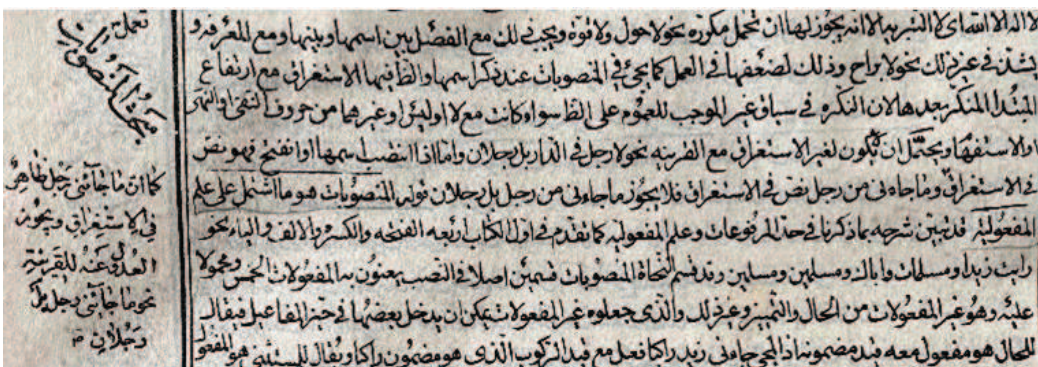 لا اله الا الله اى لا الشريه الا انه يجوز لها ان تحمل مكورة نحو لا حول ولا قوة ويجب ذلك مع الفصل بين اسمها وبينها ومع المعرفة و
يشذ فى غير ذلك نحو لا براح وذلك لضعفها فى العمل كما يجئ فى المنصوبات عند ذكر اسمها والظ انها لاستغراق مع ارتفاع
المبتدا المنكر بعدها لان النكره فى سياق غير الموجب للعموم على الظ سواء كانت مع لا او ليس او غيرهما من حروف النفى او النهى
او الاستفهام ويحتمل ان يكون لغير الاستغراق مع القرينه نحو لا رجل فى الدار بل رجلان واما اذا انتصب اسمها او انفتح فهو نص
فى الاستغراق وما جاءنى من رجل نص فى الاستغراق فلا يجوز ما جاءنى من رجل بل رجلان قوله المنصوبات هو ما اشتمل على علم
المفعولية قد تبين شرحه بما ذكرنا فى حد المرفوعات وعلم المفعوليه كما تقدم فى اول الكتاب اربعه الفتحه والكسره والالف والياء نحو
رايت زيدا ومسلمات واباك ومسلمين ومسلمين وقد قسم النحاة المنصوبات قسمين اصلا فى النصب يعنون به المفعولات الخمس ومحمولا
عليه وهو غير المفعولات من الحال والتمييز وغير ذلك والذى جعلوه غير المفعولات يمكن ان يدخل بعضها فى حيز المفاعيل فيقال
للحال هو مفعول معه قيد مضمونه اذ المجئ فى جاءنى زيد راكبا فعل مع قيد الركوب الذى هو مضمون راكبا ويقال للمستثنى هو المفعول
تعمل
مبحث المنصوبات
كما ان ما جائنى رجل ظاهر
فى الاستغراق ويجوز
العدول عنه للقرينة
نحو ما جائنى رجل بل
رجلان